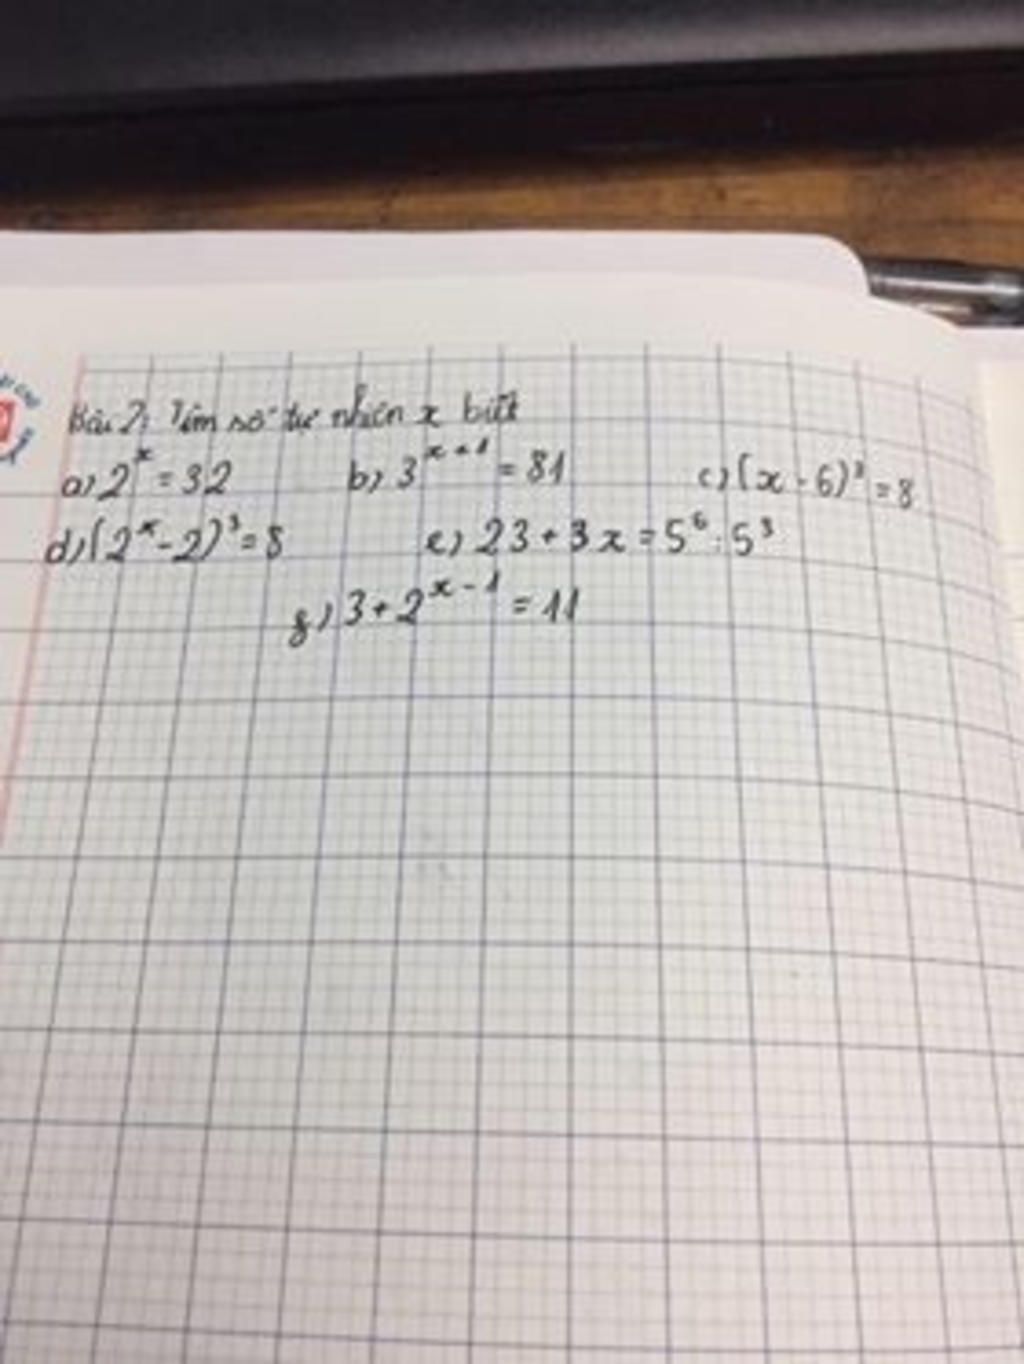 Bài 2: Tìm số tự nhiên x biết
a) 2^x = 32 b) 3^{x+1} = 81 c) (x - 6)^3 = 8
d) (2^x - 2)^3 = 8 e) 23 + 3x = 5^6 : 5^3
g) 3 + 2^{x-1} = 11